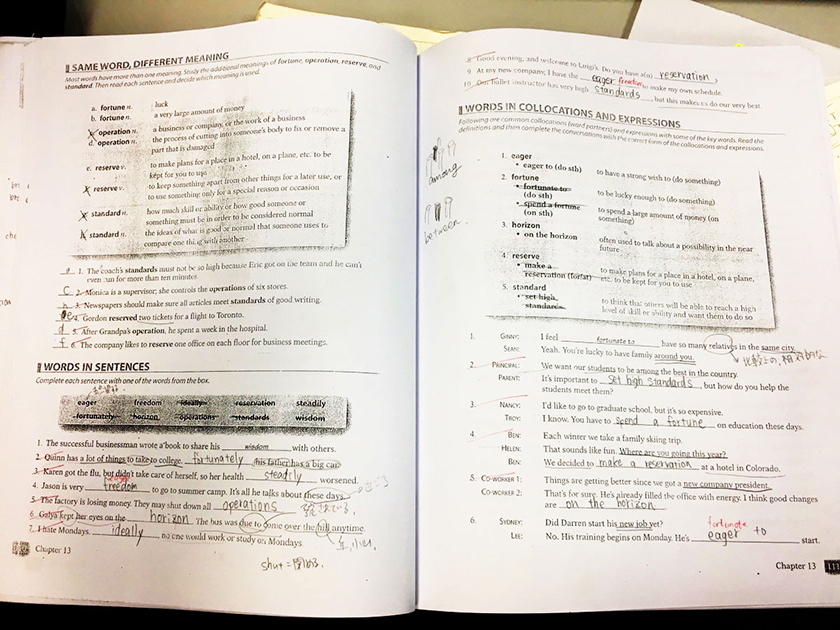 SAME WORD, DIFFERENT MEANING
Most words have more than one meaning. Study the additional meanings of fortune, operation, reserve, and
standard. Then read each sentence and decide which meaning is used.
a. fortune n. luck
b. fortune n. a very large amount of money
operation n. a business or company, or the work of a business
d. operation n. the process of cutting into someone's body to fix or remove a
part that is damaged
e. reserve v. to make plans for a place in a hotel, on a plane, etc. to be
kept for you to use
reserve v. to keep something apart from other things for a later use, or
to use something only for a special reason or occasion
standard n. how much skill or ability or how good someone or
something must be in order to be considered normal
standard n. the ideas of what is good or normal that someone uses to
compare one thing with another
1. The coach's standards must not be so high because Eric got on the team and he can't
even run for more than ten minutes.
C 2. Monica is a supervisor; she controls the operations of six stores.
h 3. Newspapers should make sure all articles meet standards of good writing.
4. Gordon reserved two tickets for a flight to Toronto.
d 5. After Grandpa's operation, he spent a week in the hospital.
f 6. The company likes to reserve one office on each floor for business meetings.
WORDS IN SENTENCES
Complete each sentence with one of the words from the box.
eager freedom ideally reservation steadily
fortunately horizon operations standards wisdom
1. The successful businessman wrote a book to share his wisdom with others.
2. Quinn has a lot of things to take to college. fortunately, his father has a big car.
3. Karen got the flu, but didn't take care of herself, so her health steadily worsened.
eager
4. Jason is very freedom to go to summer camp. It's all he talks about these days.
5. The factory is losing money. They may shut down all operations
6. Galya kept her eyes on the horizon. The bus was due to come over the hill anytime.
7. I hate Mondays. ideally, no one would work or study on Mondays.
Chapter 13
shut = 閉める
8. Good evening, and welcome to Luigi's. Do you have a(n) reservation?
freedom
9. At my new company, I have the eager to make my own schedule.
10. Our ballet instructor has very high standards, but this makes us do our very best.
WORDS IN COLLOCATIONS AND EXPRESSIONS
Following are common collocations (word partners) and expressions with some of the key words. Read the
definitions and then complete the conversations with the correct form of the collocations and expressions.
among
between
1. eager
• eager to (do sth) to have a strong wish to (do something)
2. fortune
• fortunate to to be lucky enough to (do something)
(do sth)
• spend a fortune to spend a large amount of money (on
(on sth) something)
3. horizon
• on the horizon often used to talk about a possibility in the near
future
4. reserve
• make a to make plans for a place in a hotel, on a plane,
reservation (for/at) etc. to be kept for you to use
5. standard
• set high to think that others will be able to reach a high
standards level of skill or ability and want them to do so
1. GINNY: I feel fortunate to have so many relatives in the same city.
SEAN: Yeah. You're lucky to have family around you.
2. PRINCIPAL: We want our students to be among the best in the country.
PARENT: It's important to set high standards, but how do you help the
students meet them?
3. NANCY: I'd like to go to graduate school, but it's so expensive.
TROY: I know. You have to spend a fortune on education these days.
4. BEN: Each winter we take a family skiing trip.
HELEN: That sounds like fun. Where are you going this year?
BEN: We decided to make a reservation at a hotel in Colorado.
5. CO-WORKER 1: Things are getting better since we got a new company president.
CO-WORKER 2: That's for sure. He's already filled the office with energy. I think good changes
are on the horizon
6. SYDNEY: Did Darren start his new job yet?
fortunate
LEE: No. His training begins on Monday. He's eager to start.
Chapter 13